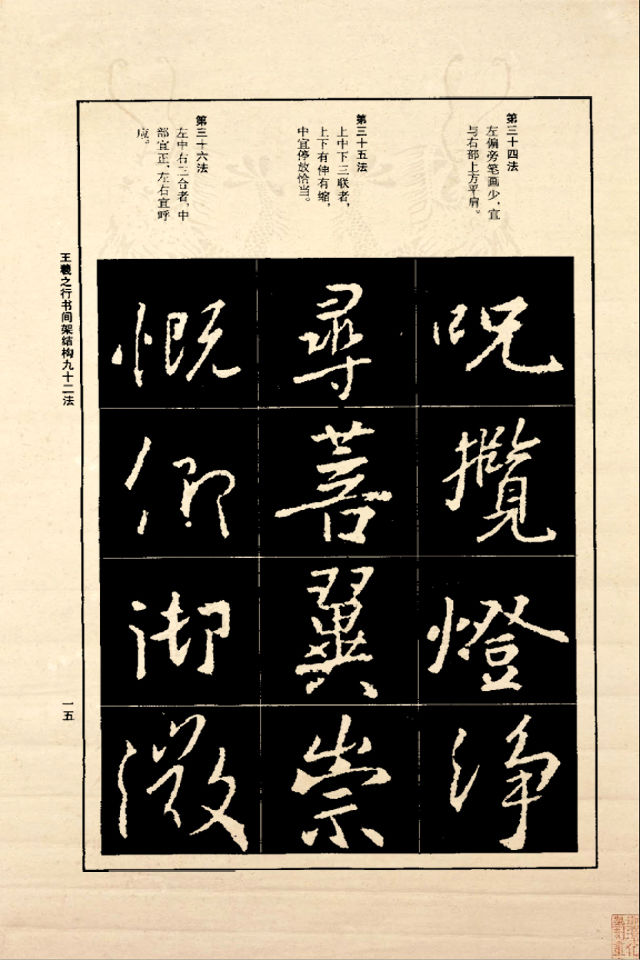 第三十四法
左偏旁笔画少，宜
与右部上方平肩。
呪
攬
燈
淨
第三十五法
上中下三联者，
上下有伸有缩，
中宜停放恰当。
尋
菩
翼
崇
第三十六法
左中右三合者，中
部宜正，左右宜呼
应。
慨
仰
御
微
王羲之行书间架结构九十二法
一五